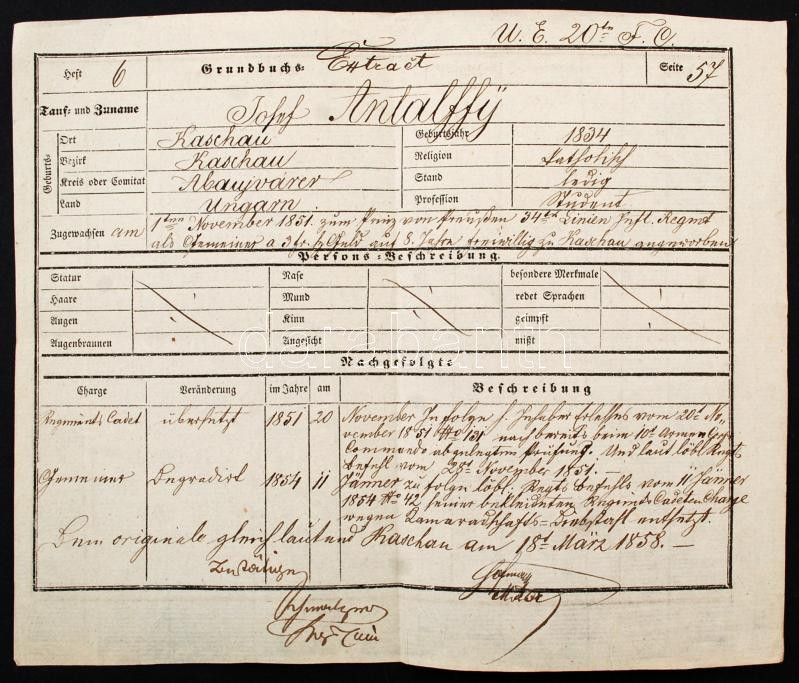 U. E. 20tn F. C.
Heft 6 Grundbuchs= Extract Seite 57
Tauf= und Zuname Josef Antalffÿ
Geburts=
Ort Kaschau Geburtsjahr 1834
Bezirk Kaschau Religion katholisch
Kreis oder Comitat Abaujvárer Stand ledig
Land Ungarn Profession Student
Zugewachsen am 1ten November 1851 zum Prinz von Preußen 34ten Linien Inft. Regmt
als Gemeiner a 3 fr. auf 8 Jahre freiwillig zu Kaschau angeworben
Persons=Beschreibung.
Statur Nase besondere Merkmale
Haare Mund redet Sprachen
Augen Kinn geimpft
Augenbraunen Angesicht mißt
Nachgefolgte
Charge Veränderung im Jahre am Beschreibung
Regiments Cadet übersetzt 1851 20 November In folge h. Inhaber Erlasses vom 20t No=
vember 1851 No 131 nach bereits beim 10t Armee Corps
Commando abgelegten Prüfung. Und laut löbl. Regts
befehl vom 28t November 1851. —
Gemeiner Degradirt 1854 11 Jänner zu folge löbl. Regts befehls vom 11 Jänner
1854 No 42 seiner bekleideten Regiments Cadeten Charge
wegen Kameradschafts=Diebstahl entsetzt.
Dem originale gleichlautend Kaschau am 18t März 1858. —
darabanth